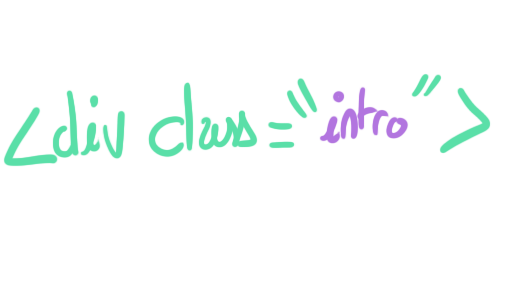 <div class="intro">